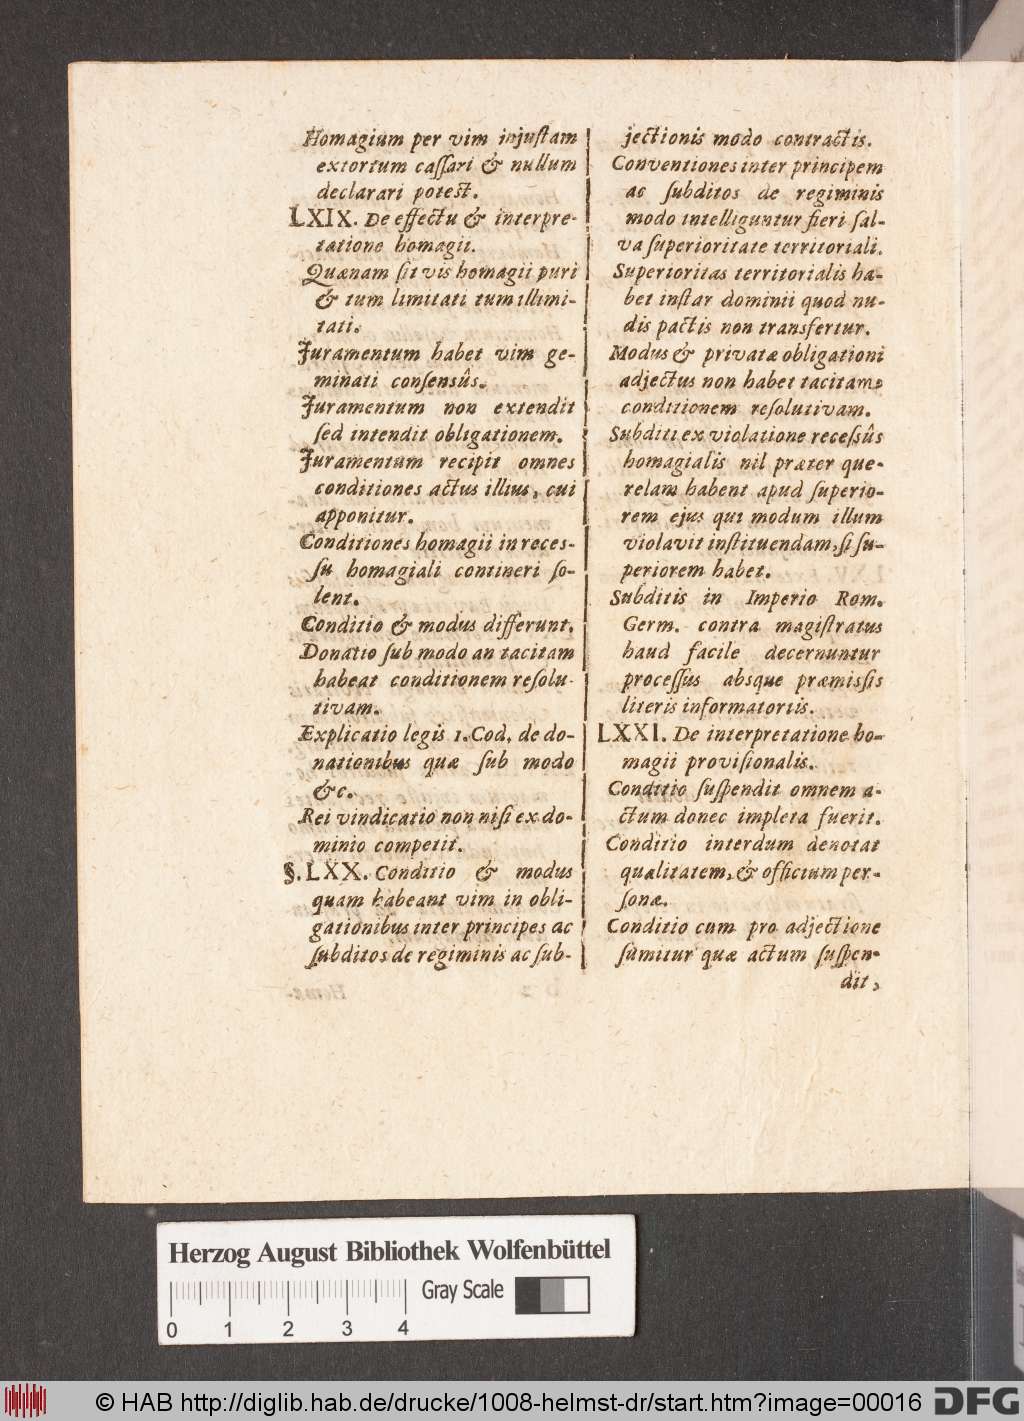 Homagium per vim injuſtam
extortum caſſari & nullum
declarari poteſt.
LXIX. De effectu & interpre-
tatione homagii.
Quænam ſit vis homagii puri
& tum limitati tum illimi-
tati.
Juramentum habet vim ge-
minati conſensûs.
Juramentum non extendit
ſed intendit obligationem.
Juramentum recipit omnes
conditiones actus illius, cui
apponitur.
Conditiones homagii in reces-
ſu homagiali contineri ſo-
lent.
Conditio & modus differunt.
Donatio ſub modo an tacitam
habeat conditionem reſolu-
tivam.
Explicatio legis 1. Cod. de do-
nationibus quæ ſub modo
&c.
Rei vindicatio non niſi ex do-
minio competit.
§. LXX. Conditio & modus
quam habeant vim in obli-
gationibus inter principes ac
ſubditos de regiminis ac ſub-
jectionis modo contractis.
Conventiones inter principem
ac ſubditos de regiminis
modo intelliguntur fieri ſal-
va ſuperioritate territoriali.
Superioritas territorialis ha-
bet inſtar dominii quod nu-
dis pactis non transfertur.
Modus & privatæ obligationi
adjectus non habet tacitam
conditionem reſolutivam.
Subditi ex violatione receſsûs
homagialis nil præter que-
relam habent apud ſuperio-
rem ejus qui modum illum
violavit inſtituendam, ſi ſu-
periorem habet.
Subditis in Imperio Rom.
Germ. contra magiſtratus
haud facile decernuntur
proceſſus absque præmiſsis
literis informatoriis.
LXXI. De interpretatione ho-
magii proviſionalis.
Conditio ſuſpendit omnem a-
ctum donec impleta fuerit.
Conditio interdum denotat
qualitatem, & officium per-
ſonæ.
Conditio cum pro adjectione
ſumitur quæ actum ſuſpen-
dit,
Herzog August Bibliothek Wolfenbüttel
Gray Scale
0 1 2 3 4
© HAB http://diglib.hab.de/drucke/1008-helmst-dr/start.htm?image=00016
DFG